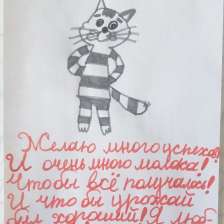 Желаю много успехов!
И очень много молока!
Чтобы всё получалось!
И чтобы урожай
был хороший! Я люб-